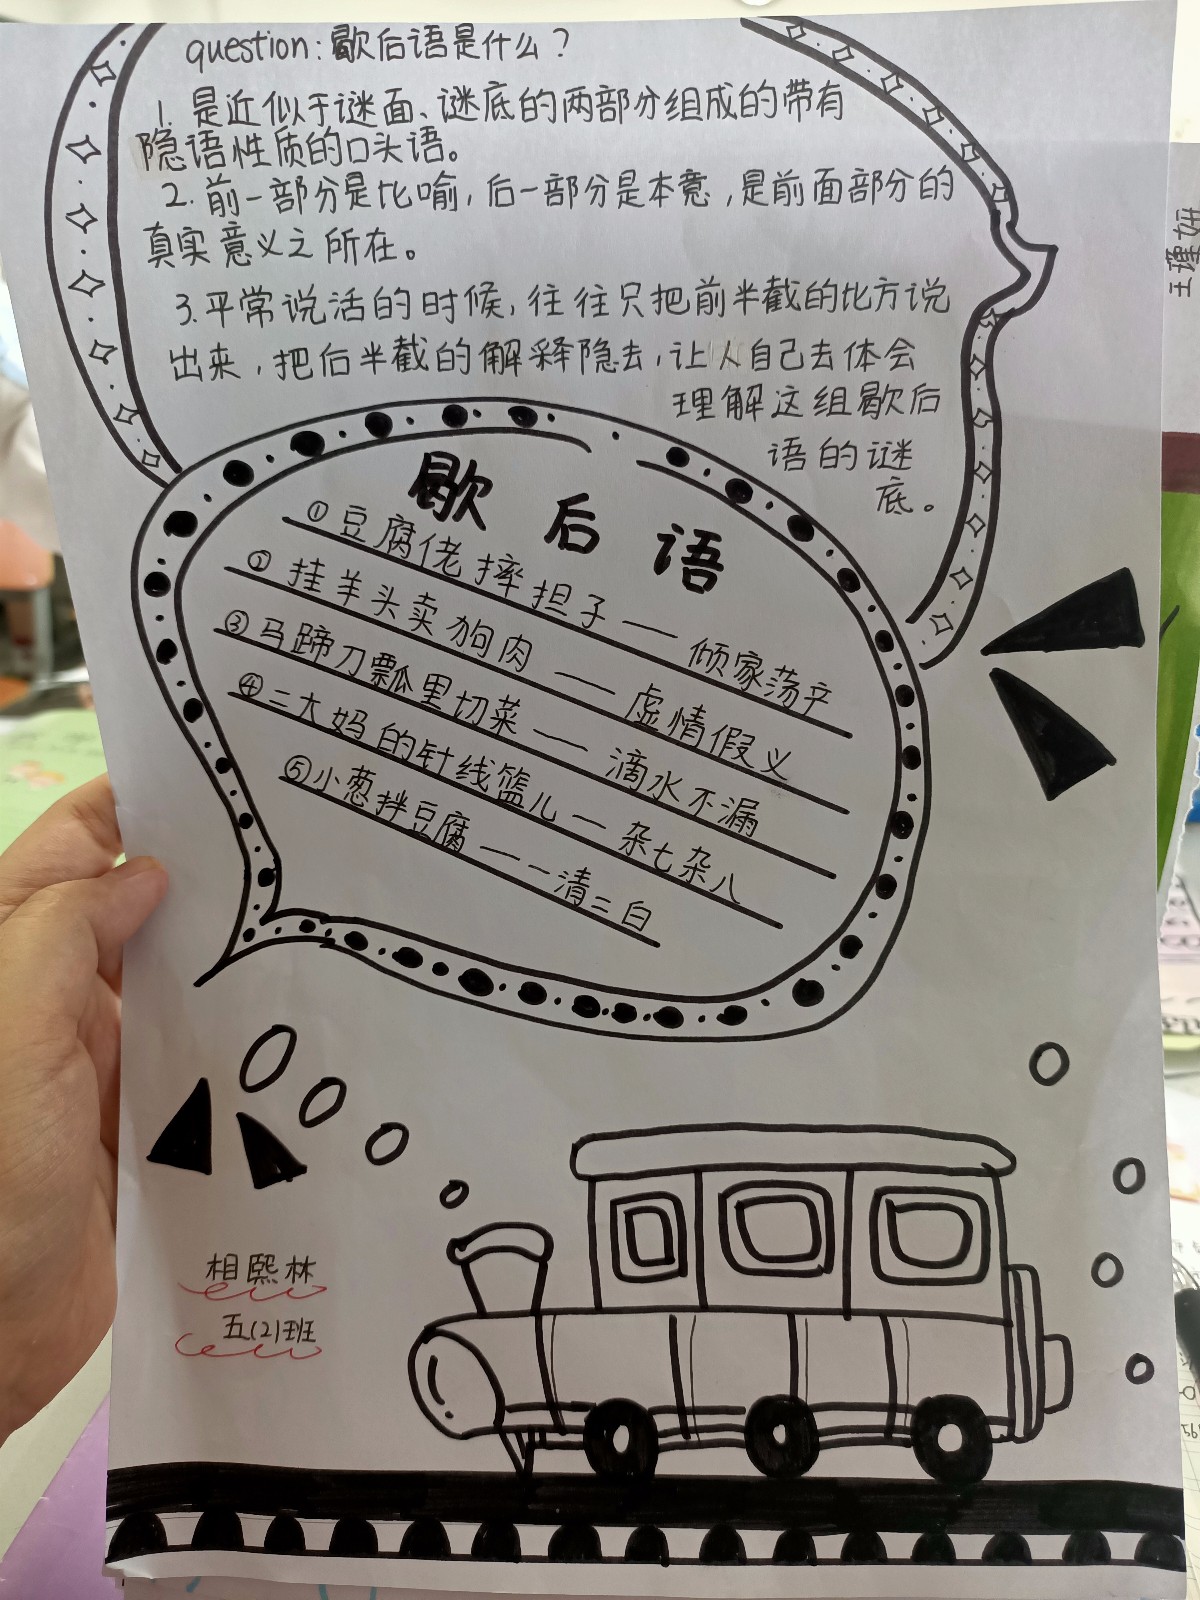 question: 歇后语是什么？
1. 是近似于谜面、谜底的两部分组成的带有
隐语性质的口头语。
2. 前一部分是比喻，后一部分是本意，是前面部分的
真实意义之所在。
3. 平常说活的时候，往往只把前半截的比方说
出来，把后半截的解释隐去，让人自己去体会
理解这组歇后
语的谜
底。
歇后语
①豆腐佬摔担子——倾家荡产
②挂羊头卖狗肉——虚情假义
③马蹄刀瓢里切菜——滴水不漏
④二大妈的针线篮儿—杂七杂八
⑤小葱拌豆腐——一清二白
相熙林
五(2)班
王瑾妍